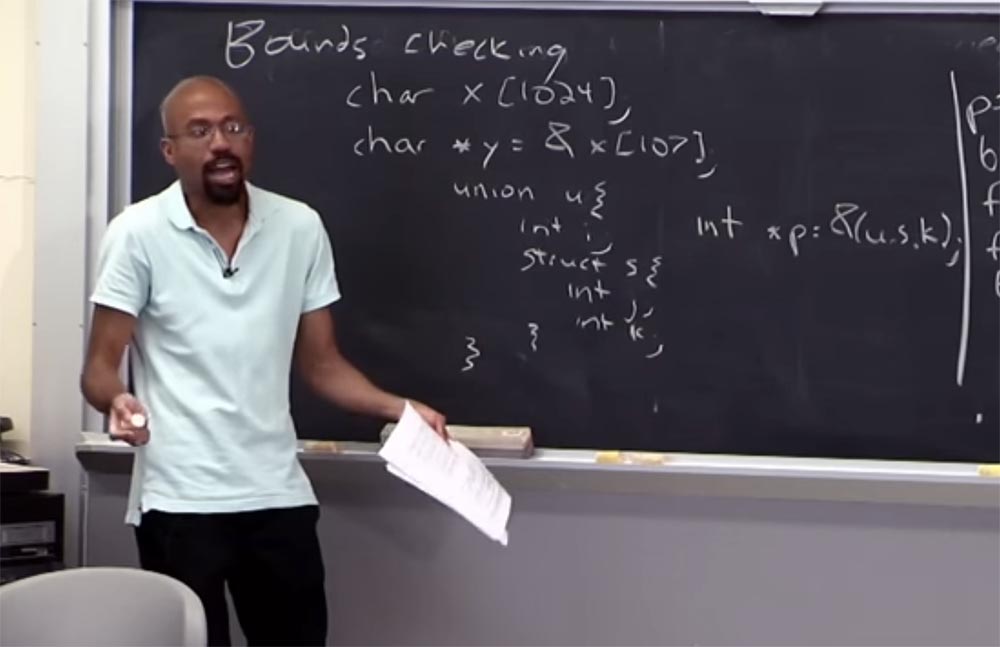 Bounds checking
char x [1024];
char *y = & x[107];
union u{
int i;
struct s{
int j;
int k;
}
}
int *p = &(u.s.k);
p=
b
f
f